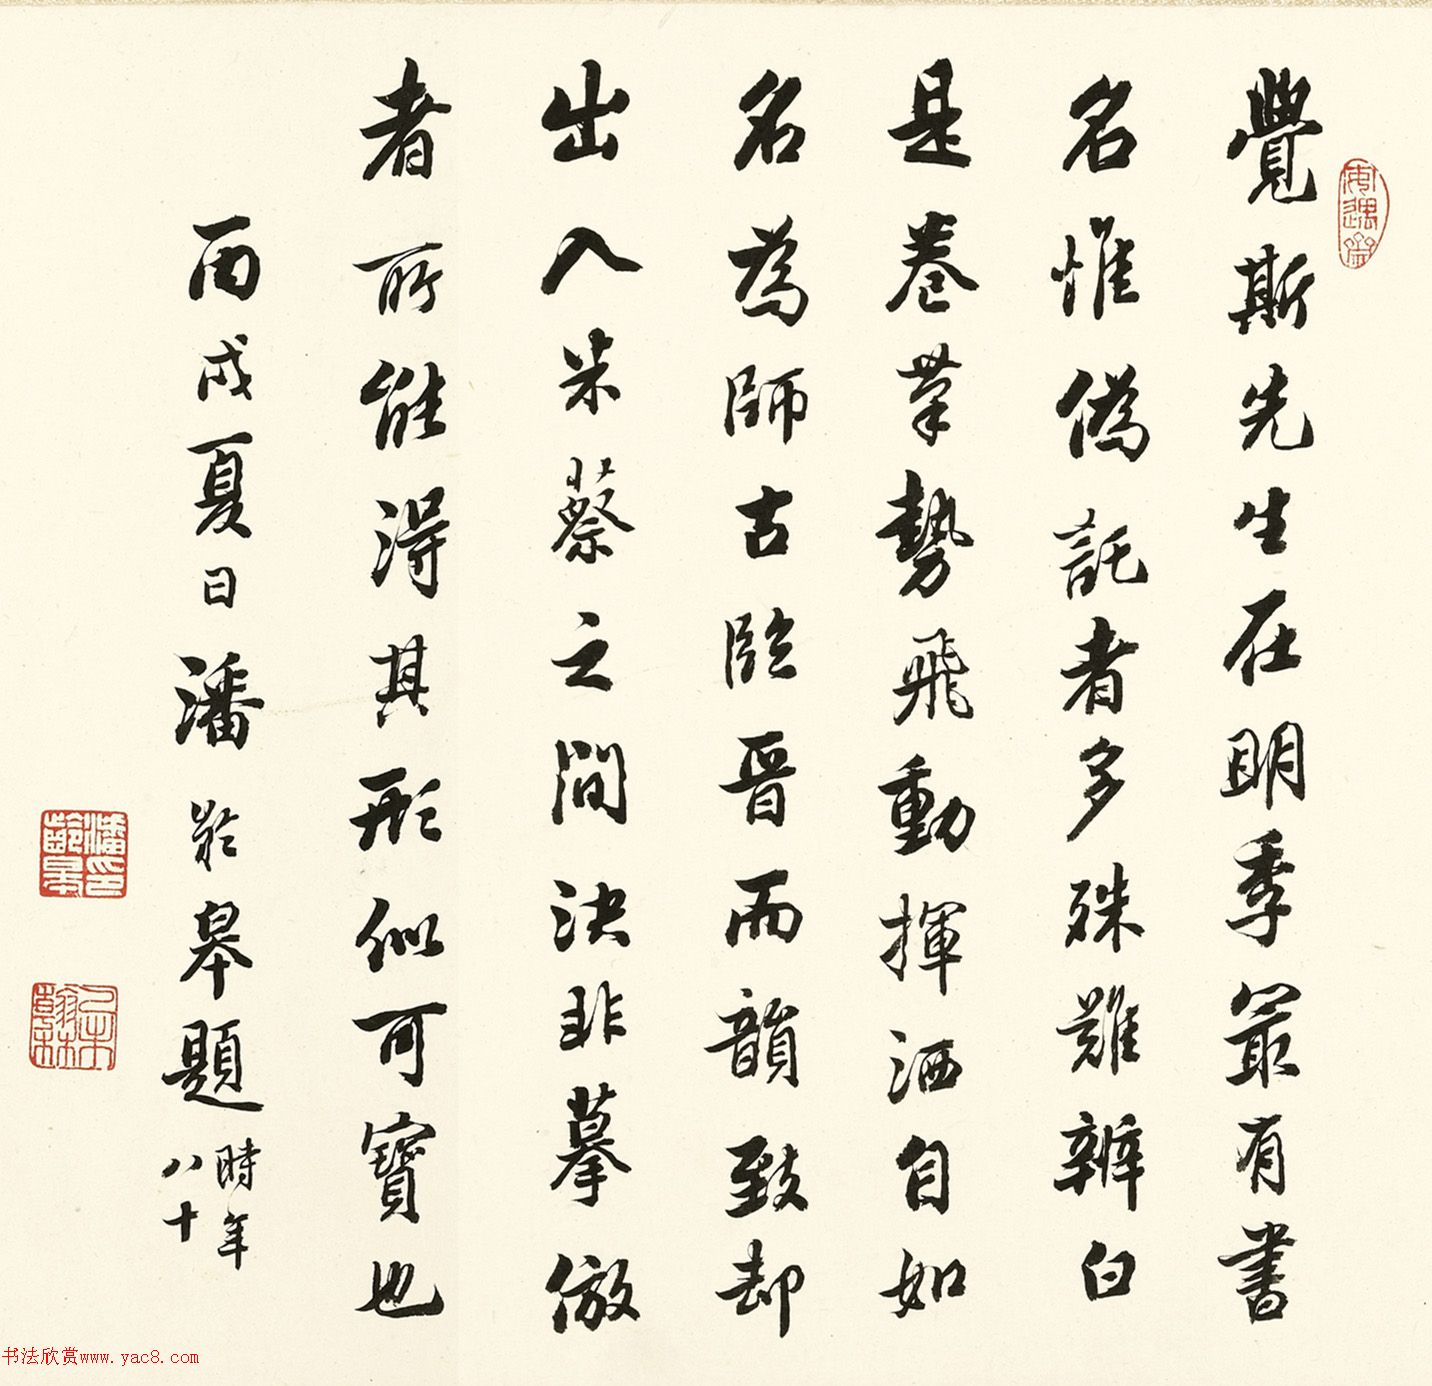 覺斯先生在明季最有書
名惟偽託者多殊難辨白
是卷筆勢飛動揮洒自如
名為師古臨晉而韻致却
出入米蔡之間決非摹倣
者所能得其形似可寶也
丙戌夏日潘齡皋題
時年
八十
潘印齡皋
書法欣赏www.yac8.com